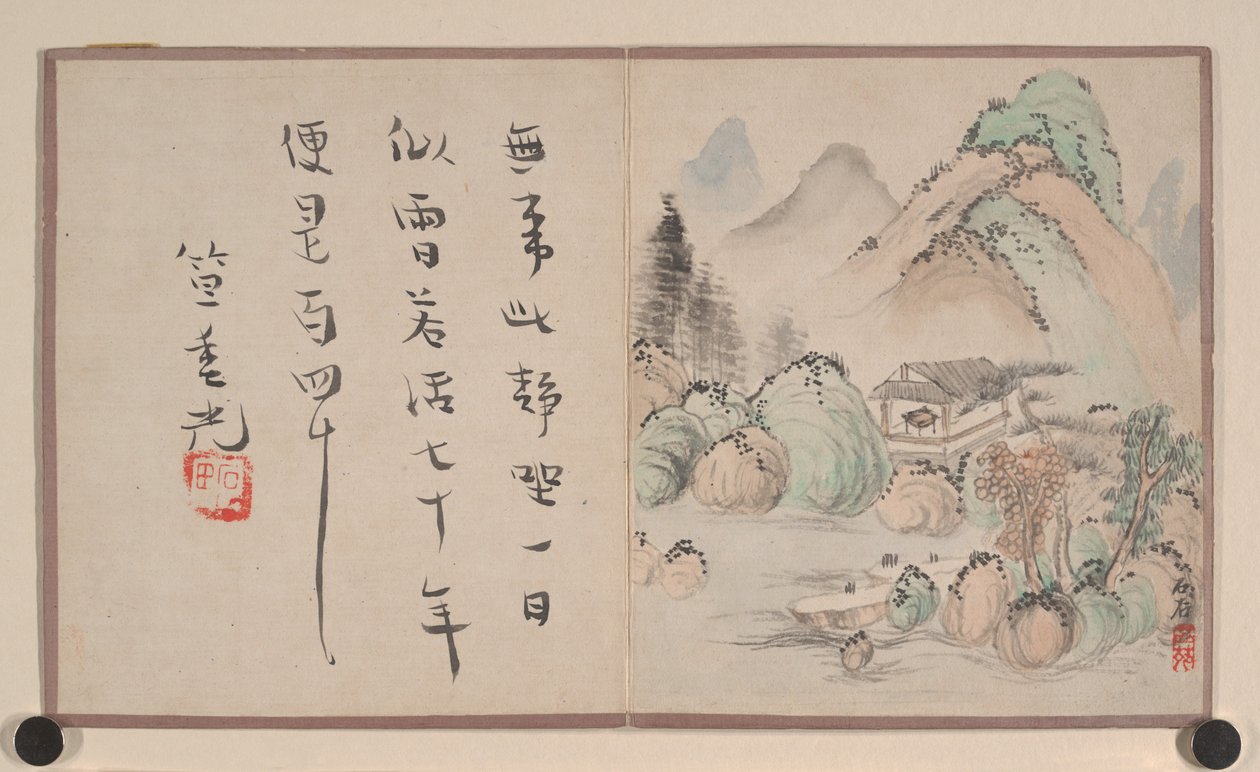 無事此靜坐一日
似兩日若活七十年
便是百四十
笪重光